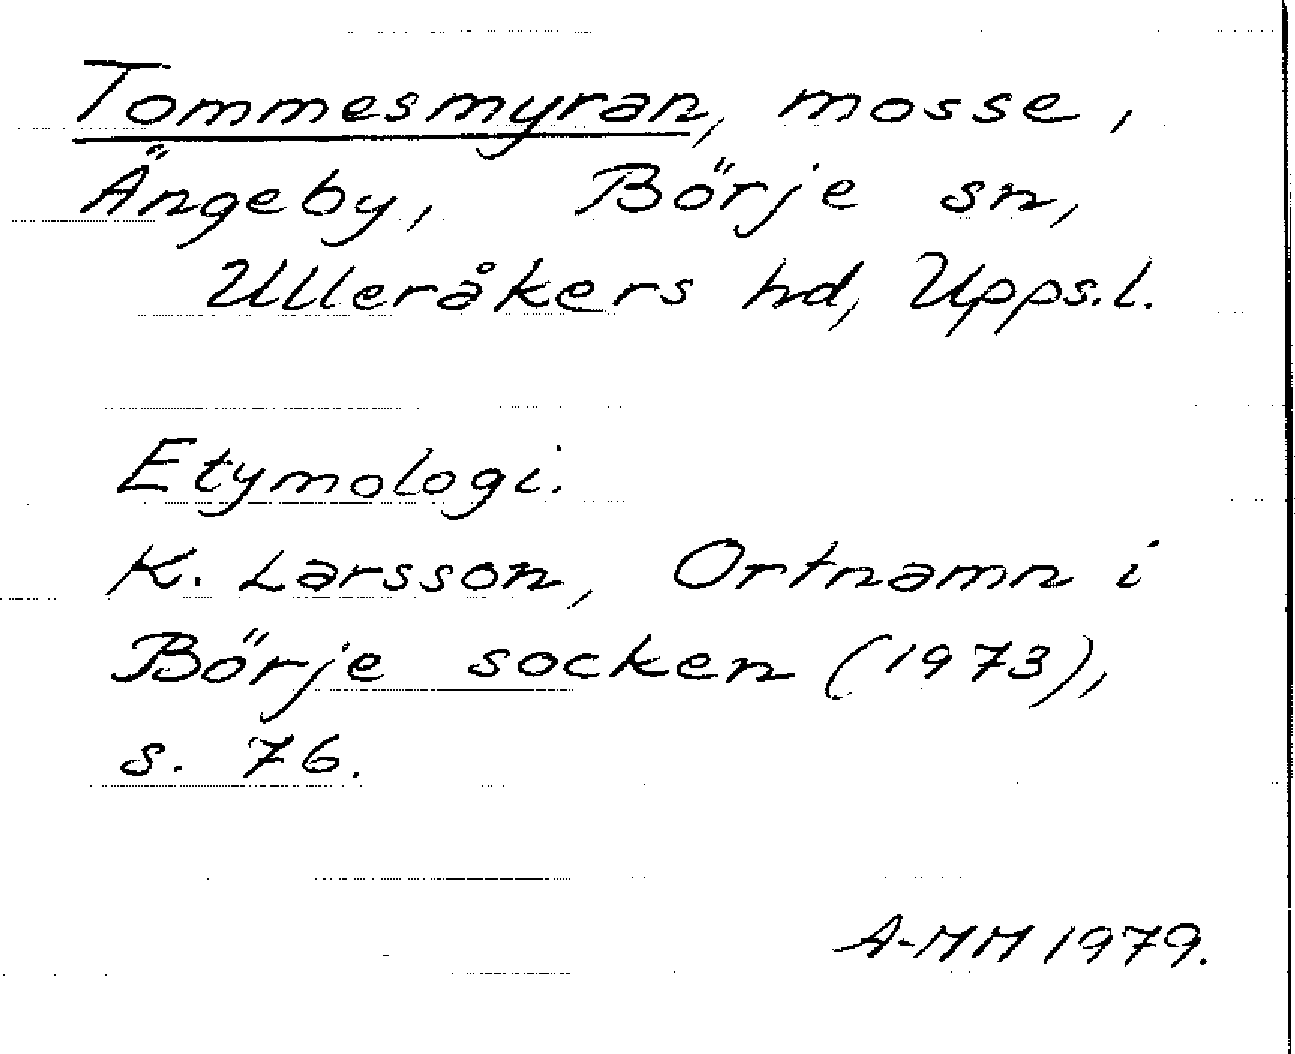 Tommesmyran, mosse,
Ängeby, Börje sn,
Ulleråkers hd, Upps.l.
Etymologi.
K. Larsson, Ortnamn i
Börje socken (1973),
s. 76.
A-MM 1979.